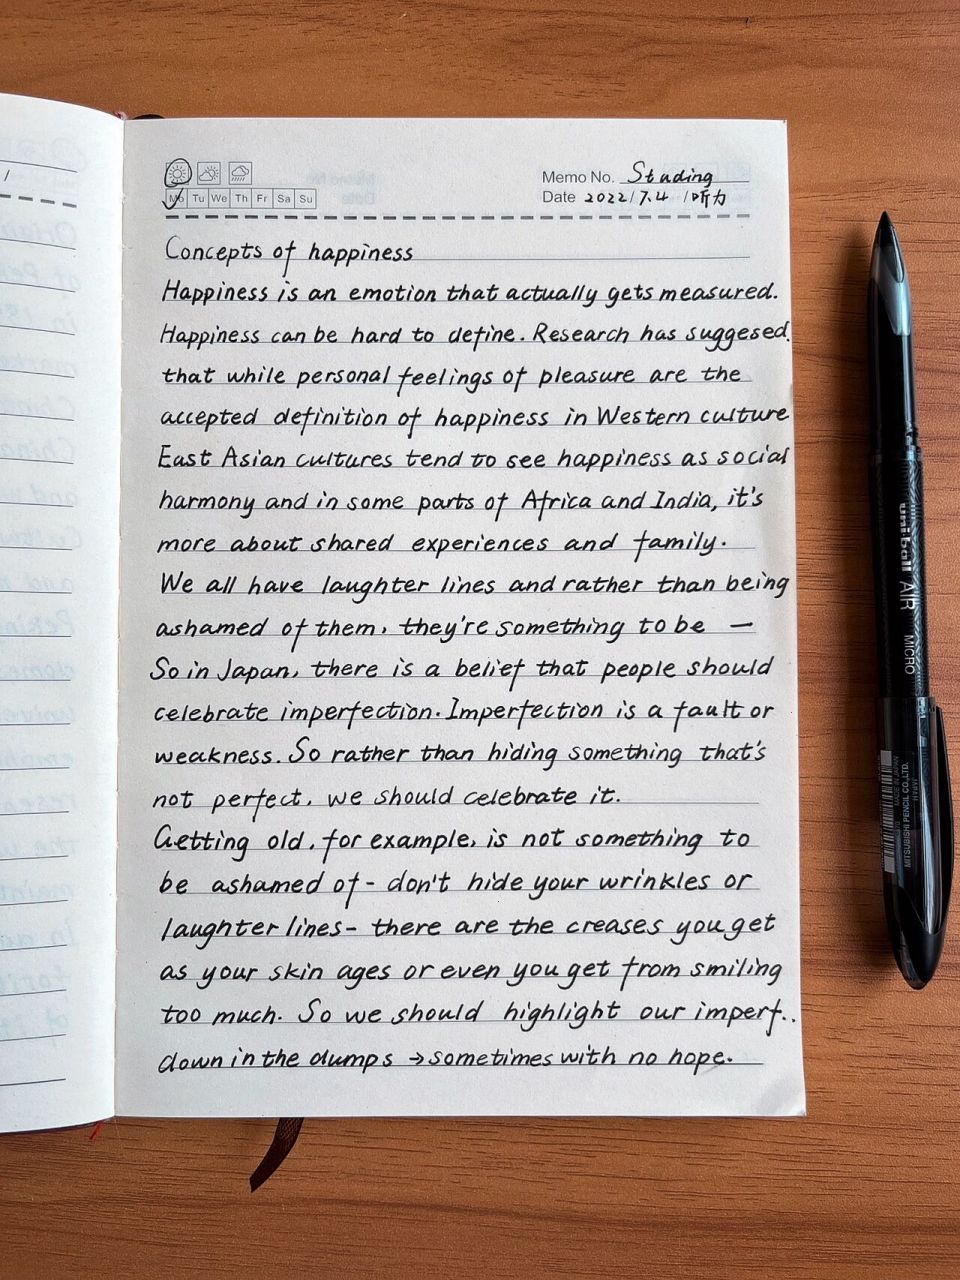 Memo No. Studing
Mo Tu We Th Fr Sa Su
Date 2022/7.4 /听力
Concepts of happiness
Happiness is an emotion that actually gets measured.
Happiness can be hard to define. Research has suggesed.
that while personal feelings of pleasure are the
accepted definition of happiness in Western culture
East Asian cultures tend to see happiness as social
harmony and in some parts of Africa and India, it's
more about shared experiences and family.
We all have laughter lines and rather than being
ashamed of them, they're something to be —
So in Japan, there is a belief that people should
celebrate imperfection. Imperfection is a fault or
weakness. So rather than hiding something that's
not perfect, we should celebrate it.
Getting old, for example, is not something to
be ashamed of - don't hide your wrinkles or
laughter lines- there are the creases you get
as your skin ages or even you get from smiling
too much. So we should highlight our imperf..
down in the dumps → sometimes with no hope.
uni-ball AIR MICRO
MITSUBISHI PENCIL CO.,LTD.
MADE IN JAPAN